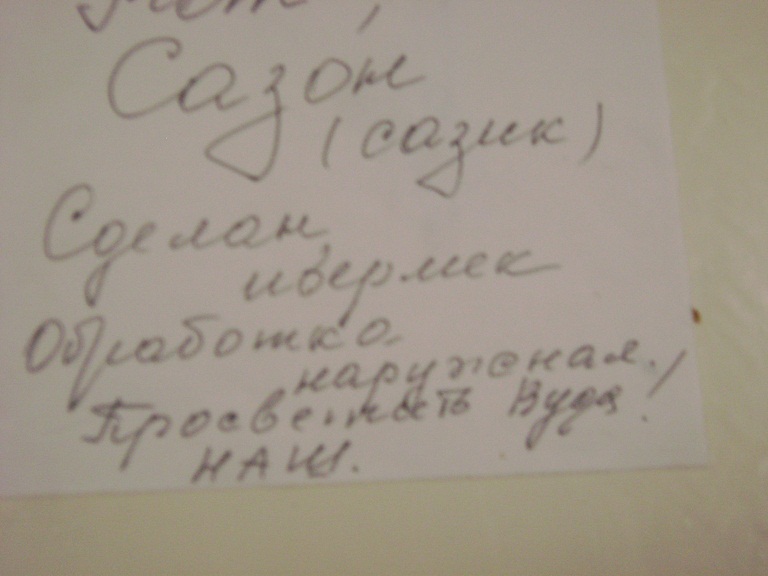 Сазон
(сазик)
Сделан
ивермек
Обработка
наружная.
Просветость Вуда!
НАШ.